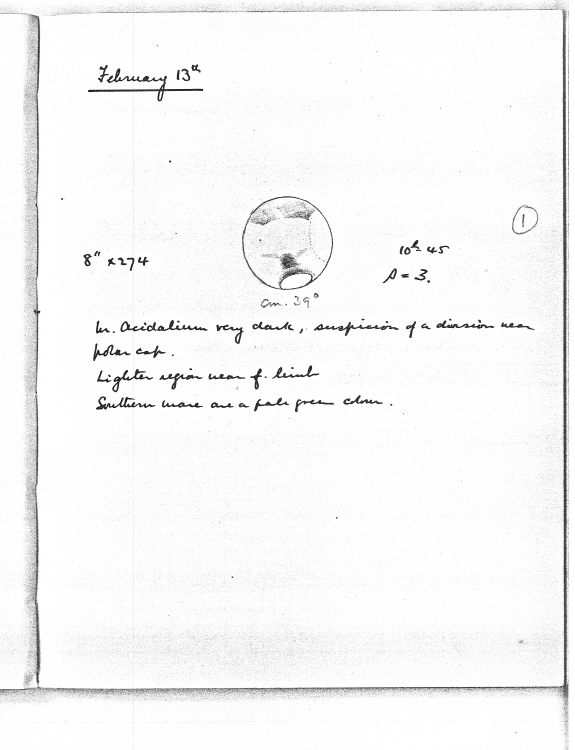 February 13th
1
8" x 274
10h 45
S = 3.
cm. 39°
M. Acidalium very dark, suspicion of a division near
polar cap.
Lighter region near f. limb
Southern mare are a pale green colour.